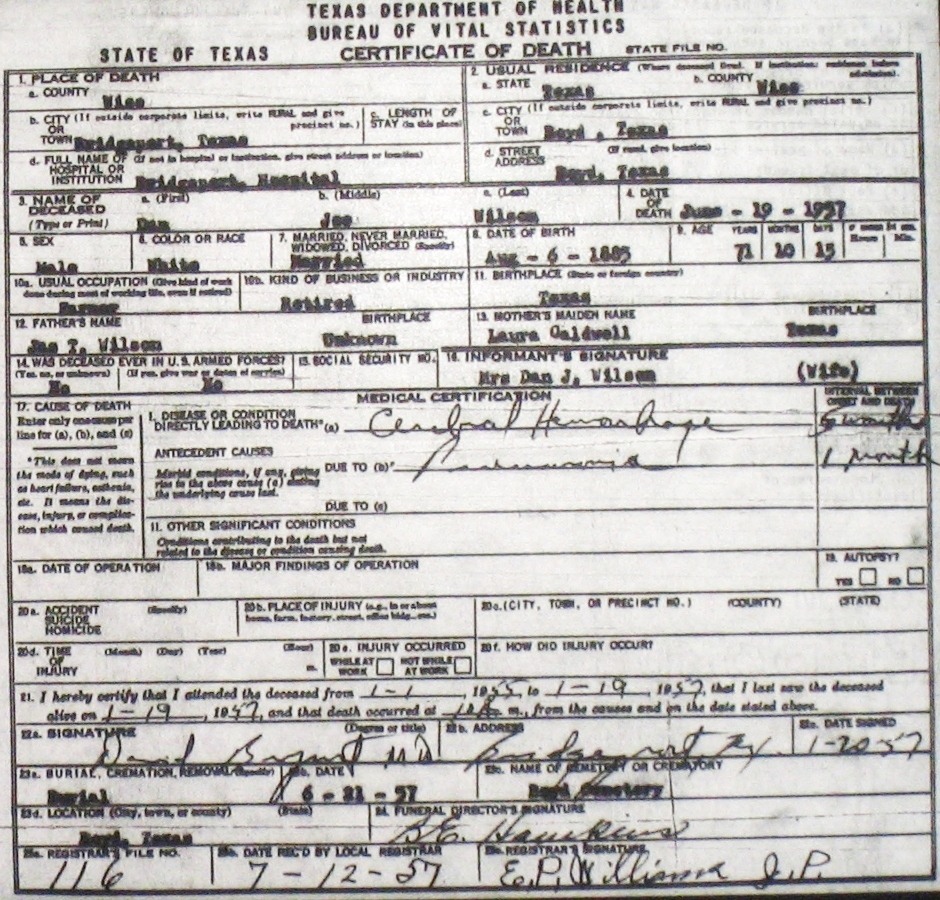 TEXAS DEPARTMENT OF HEALTH
BUREAU OF VITAL STATISTICS
STATE OF TEXAS CERTIFICATE OF DEATH STATE FILE NO.
1. PLACE OF DEATH
a. COUNTY
Wise
2. USUAL RESIDENCE (Where deceased lived. If institution: residence before admission)
a. STATE Texas b. COUNTY Wise
b. CITY (If outside corporate limits, write RURAL and give precinct no.)
OR
TOWN Bridgeport, Texas
c. LENGTH OF
STAY (in this place)
c. CITY (If outside corporate limits, write RURAL and give precinct no.)
OR
TOWN Boyd, Texas
d. FULL NAME OF (If not in hospital or institution, give street address or location)
HOSPITAL OR
INSTITUTION Bridgeport, Hospital
d. STREET (If rural, give location)
ADDRESS Boyd, Texas
3. NAME OF
DECEASED
(Type or Print)
a. (First) b. (Middle) c. (Last)
Dan Joe Wilson
4. DATE
OF
DEATH June - 19 - 1957
5. SEX
Male
6. COLOR OR RACE
White
7. MARRIED, NEVER MARRIED,
WIDOWED, DIVORCED (Specify)
Married
8. DATE OF BIRTH
Aug - 6 - 1885
9. AGE YEARS MONTHS DAYS
71 10 15
Hours Min.
10a. USUAL OCCUPATION (Give kind of work
done during most of working life, even if retired)
Farmer
10b. KIND OF BUSINESS OR INDUSTRY
Retired
11. BIRTHPLACE (State or foreign country)
Texas
12. FATHER'S NAME BIRTHPLACE
Jas T. Wilson Unknown
13. MOTHER'S MAIDEN NAME BIRTHPLACE
Laura Caldwell Texas
14. WAS DECEASED EVER IN U.S. ARMED FORCES?
(Yes, no, or unknown) (If yes, give war or dates of service)
No No
15. SOCIAL SECURITY NO.
16. INFORMANT'S SIGNATURE
Mrs Dan J. Wilson (Wife)
MEDICAL CERTIFICATION
INTERVAL BETWEEN
ONSET AND DEATH
17. CAUSE OF DEATH
Enter only one cause per
line for (a), (b), and (c)
*This does not mean
the mode of dying, such
as heart failure, asthenia,
etc. It means the dis-
ease, injury, or complica-
tion which caused death.
I. DISEASE OR CONDITION
DIRECTLY LEADING TO DEATH* (a) Cerebral Hemorrhage months
ANTECEDENT CAUSES
Morbid conditions, if any, giving
rise to the above cause (a) stating
the underlying cause last.
DUE TO (b) Pneumonia 1 month
DUE TO (c)
11. OTHER SIGNIFICANT CONDITIONS
Conditions contributing to the death but not
related to the disease or condition causing death.
18a. DATE OF OPERATION
18b. MAJOR FINDINGS OF OPERATION
19. AUTOPSY?
YES NO
20a. ACCIDENT (Specify)
SUICIDE
HOMICIDE
20b. PLACE OF INJURY (e.g., in or about
home, farm, factory, street, office bldg., etc.)
20c. (CITY, TOWN, OR PRECINCT NO.) (COUNTY) (STATE)
20d. TIME (Month) (Day) (Year) (Hour)
OF
INJURY m.
20e. INJURY OCCURRED
WHILE AT WORK NOT WHILE AT WORK
20f. HOW DID INJURY OCCUR?
21. I hereby certify that I attended the deceased from 1-1, 1955, to 1-19, 1957, that I last saw the deceased
alive on 1-19, 1957, and that death occurred at m., from the causes and on the date stated above.
22a. SIGNATURE (Degree or title)
David Bryant M.D.
22b. ADDRESS
Bridgeport Tex.
22c. DATE SIGNED
1-20-57
23a. BURIAL, CREMATION, REMOVAL (Specify)
Burial
23b. DATE
6 - 21 - 57
23c. NAME OF CEMETERY OR CREMATORY
Boyd Cemetery
23d. LOCATION (City, town, or county) (State)
Boyd, Texas
24. FUNERAL DIRECTOR'S SIGNATURE
Hawkins
25a. REGISTRAR'S FILE NO.
116
25b. DATE REC'D BY LOCAL REGISTRAR
7-12-57
25c. REGISTRAR'S SIGNATURE
E.P. Williams J.P.